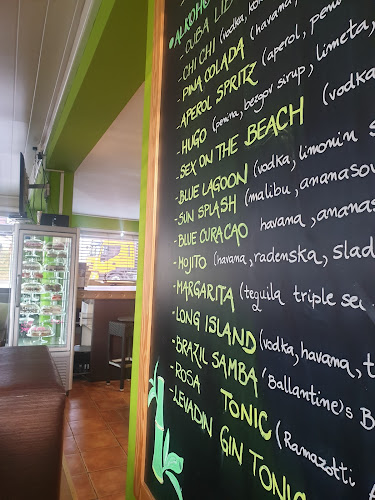 ALKOHO
- CUBA LIB
- CHI CHI (vodka, kok
- PINA COLADA (havana,
- APEROL SPRITZ (aperol, peni
- HUGO (penina, bezgov sirup, limeta,
- SEX ON THE BEACH (vodka
- BLUE LAGOON (vodka, limonin s
- SUN SPLASH (malibu, ananasov
- BLUE CURACAO havana, ananas
- MOJITO (havana, radenska, slad
- MARGARITA (tequila triple sec
- LONG ISLAND (vodka, havana, t
- BRAZIL SAMBA 'Ballantine)s B
- ROSA TONIC (Ramazotti
- LEVADIN GIN TONIC